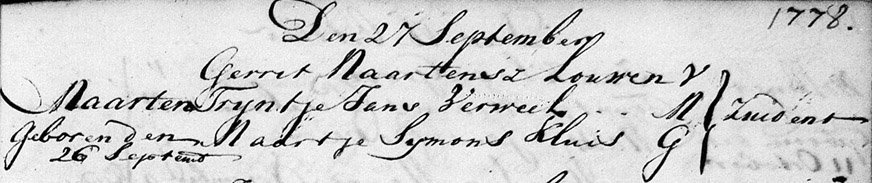 1778.
Den 27 September
Gerrit Maartensz Louwen V
Maarten Tryntje Jans Verweel .. M Zuident
geboren den Maartje Symons Kluis G
26 Septemb